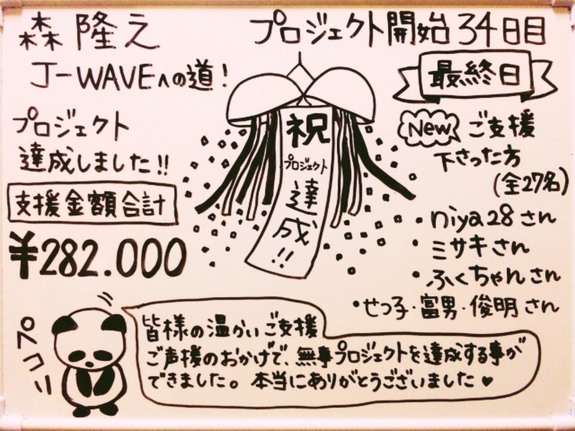 森 隆之
プロジェクト開始34日目
J-WAVEへの道!
最終日
プロジェクト
達成しました!!
祝
プロジェクト
達成!!
New
ご支援
下さった方
(全27名)
支援金額合計
¥282.000
・niya28さん
・ミサキさん
・ふくちゃんさん
・せつ子・富男・俊明さん
ペコリ
皆様の温かいご支援
ご声援のおかげで、無事プロジェクトを達成する事が
できました。本当にありがとうございました♥